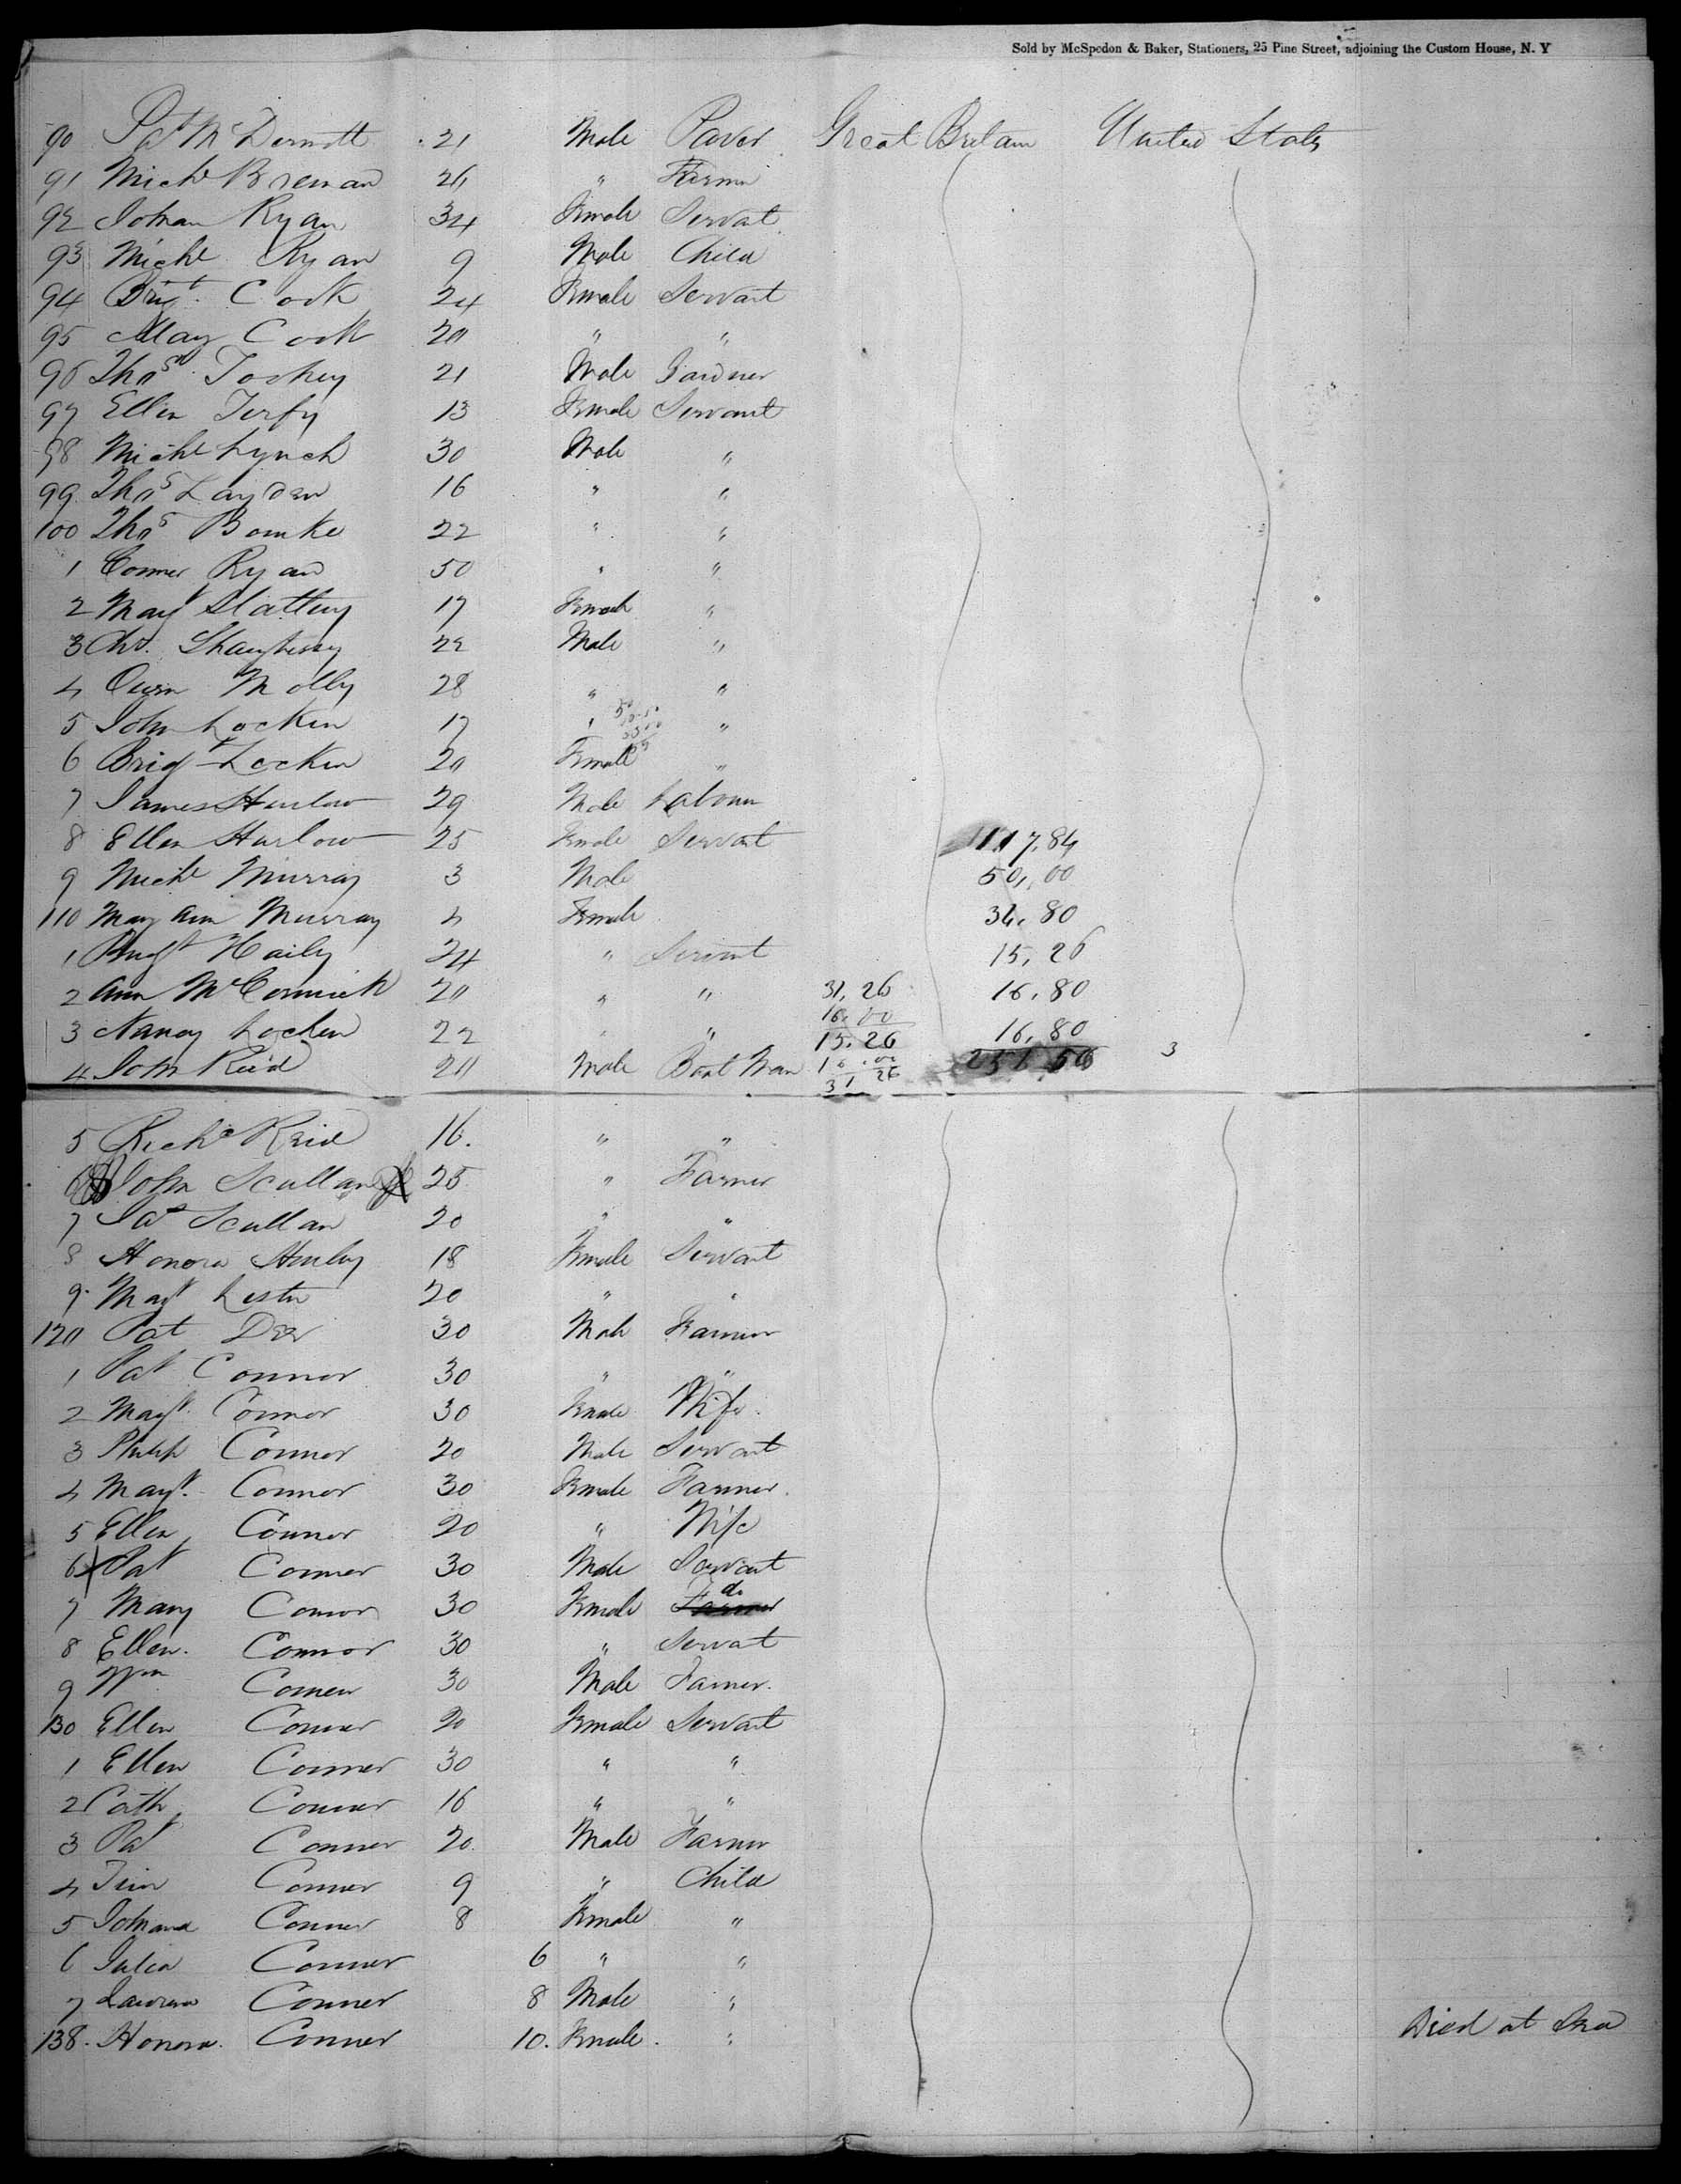 Sold by McSpedon & Baker, Stationers, 25 Pine Street, adjoining the Custom House, N. Y
90 Pat McDermott 21 Male Paver Great Britain United States
91 Michl Brennan 26 " Farmer
92 Johan Ryan 34 Female Servat
93 Michl Ryan 9 Male Child
94 Brigt. Cook 24 Female Servant
95 May Cook 20 " "
96 Thos Toohey 21 Male Gardner
97 Ellen Terfy 13 Female Servant
98 Michl Lynch 30 Male "
99 Thos Layden 16 " "
100 Thos Bourke 22 " "
1 Conner Ryan 50 " "
2 Magt Slattery 17 Female "
3 Shaughnesy 22 Male "
4 Owen Molly 28 " "
5 John Locken 17 " "
6 Brigt Locken 20 Female "
7 James Hurlow 29 Male Labourer
8 Ellen Hurlow 25 Female Servant 117,84
9 Michl Murray 3 Male 50,00
110 May Ann Murray 4 Female 34,80
1 Brigt Haily 24 " Servant 15,26
2 Ann McCormick 20 " " 31,26 16,80
16,00
3 Nancy Locken 22 " " 15.26 16,80
4 John Reid 20 Male Boat Man 16.00 251 56 3
31 26
5 Richd Reid 16. " "
6 John Scullan 25 " Farmer
7 Jas Scullan 20 " "
8 Honora Hurley 18 Female Servant
9 Magt Lester 20 " "
120 Pat Der 30 Male Farmer
1 Pat Connor 30 " "
2 Magt. Connor 30 Female Wife
3 Philip Connor 20 Male Servant
4 Magt. Connor 30 Female Farmer
5 Ellen Connor 20 " Wife
6 Pat Connor 30 Male Servant
7 Mary Connor 30 Female Farmer do
8 Ellen Connor 30 " Servat
9 Wm Conner 30 Male Farmer
130 Ellen Conner 20 Female Servant
1 Ellen Conner 30 " "
2 Cath Conner 16 " "
3 Pat Conner 20 Male Farmer
4 Tim Conner 9 " Child
5 Johana Conner 8 Female "
6 Julia Conner 6 " "
7 Lawrence Conner 8 Male "
138. Honora Conner 10. Female " Died at Sea